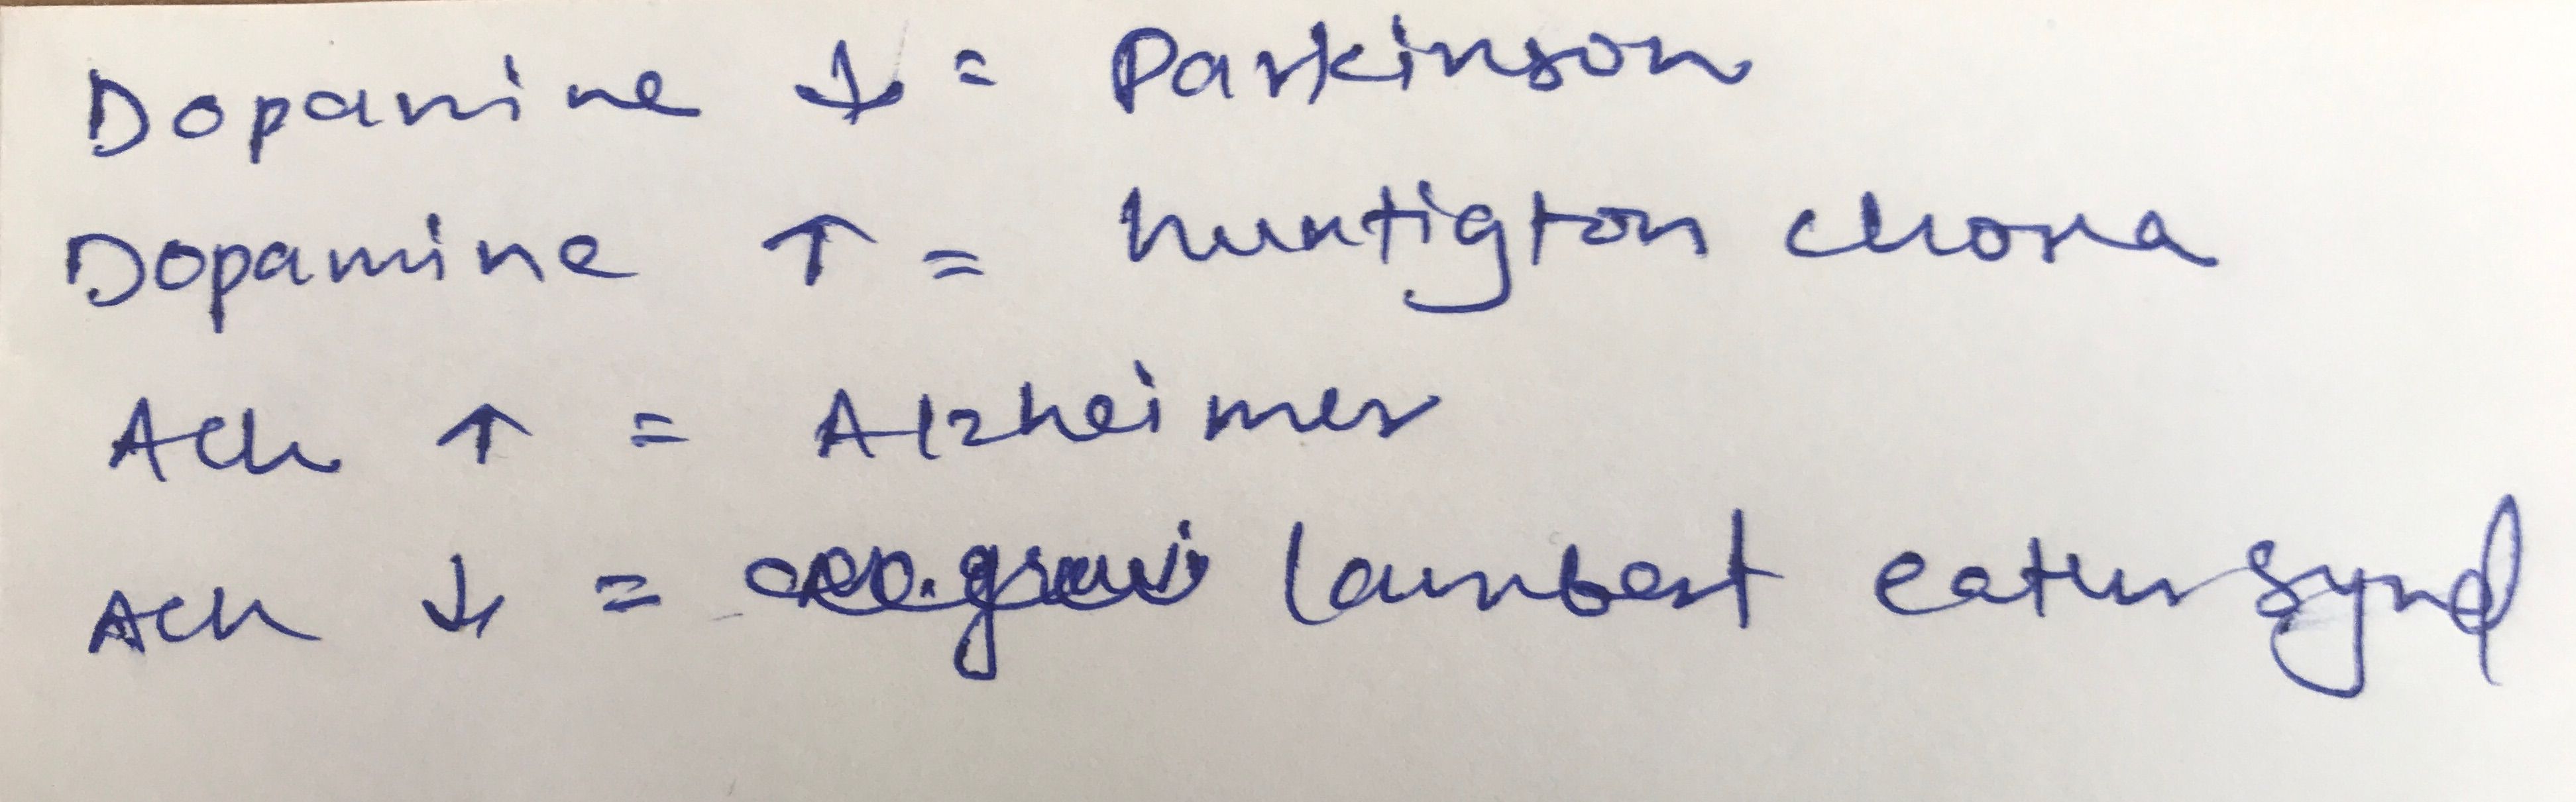 Dopamine ↓ = Parkinson
Dopamine ↑ = huntigton chorea
Ach ↑ = Alzheimer
Ach ↓ = lambert eaton synd